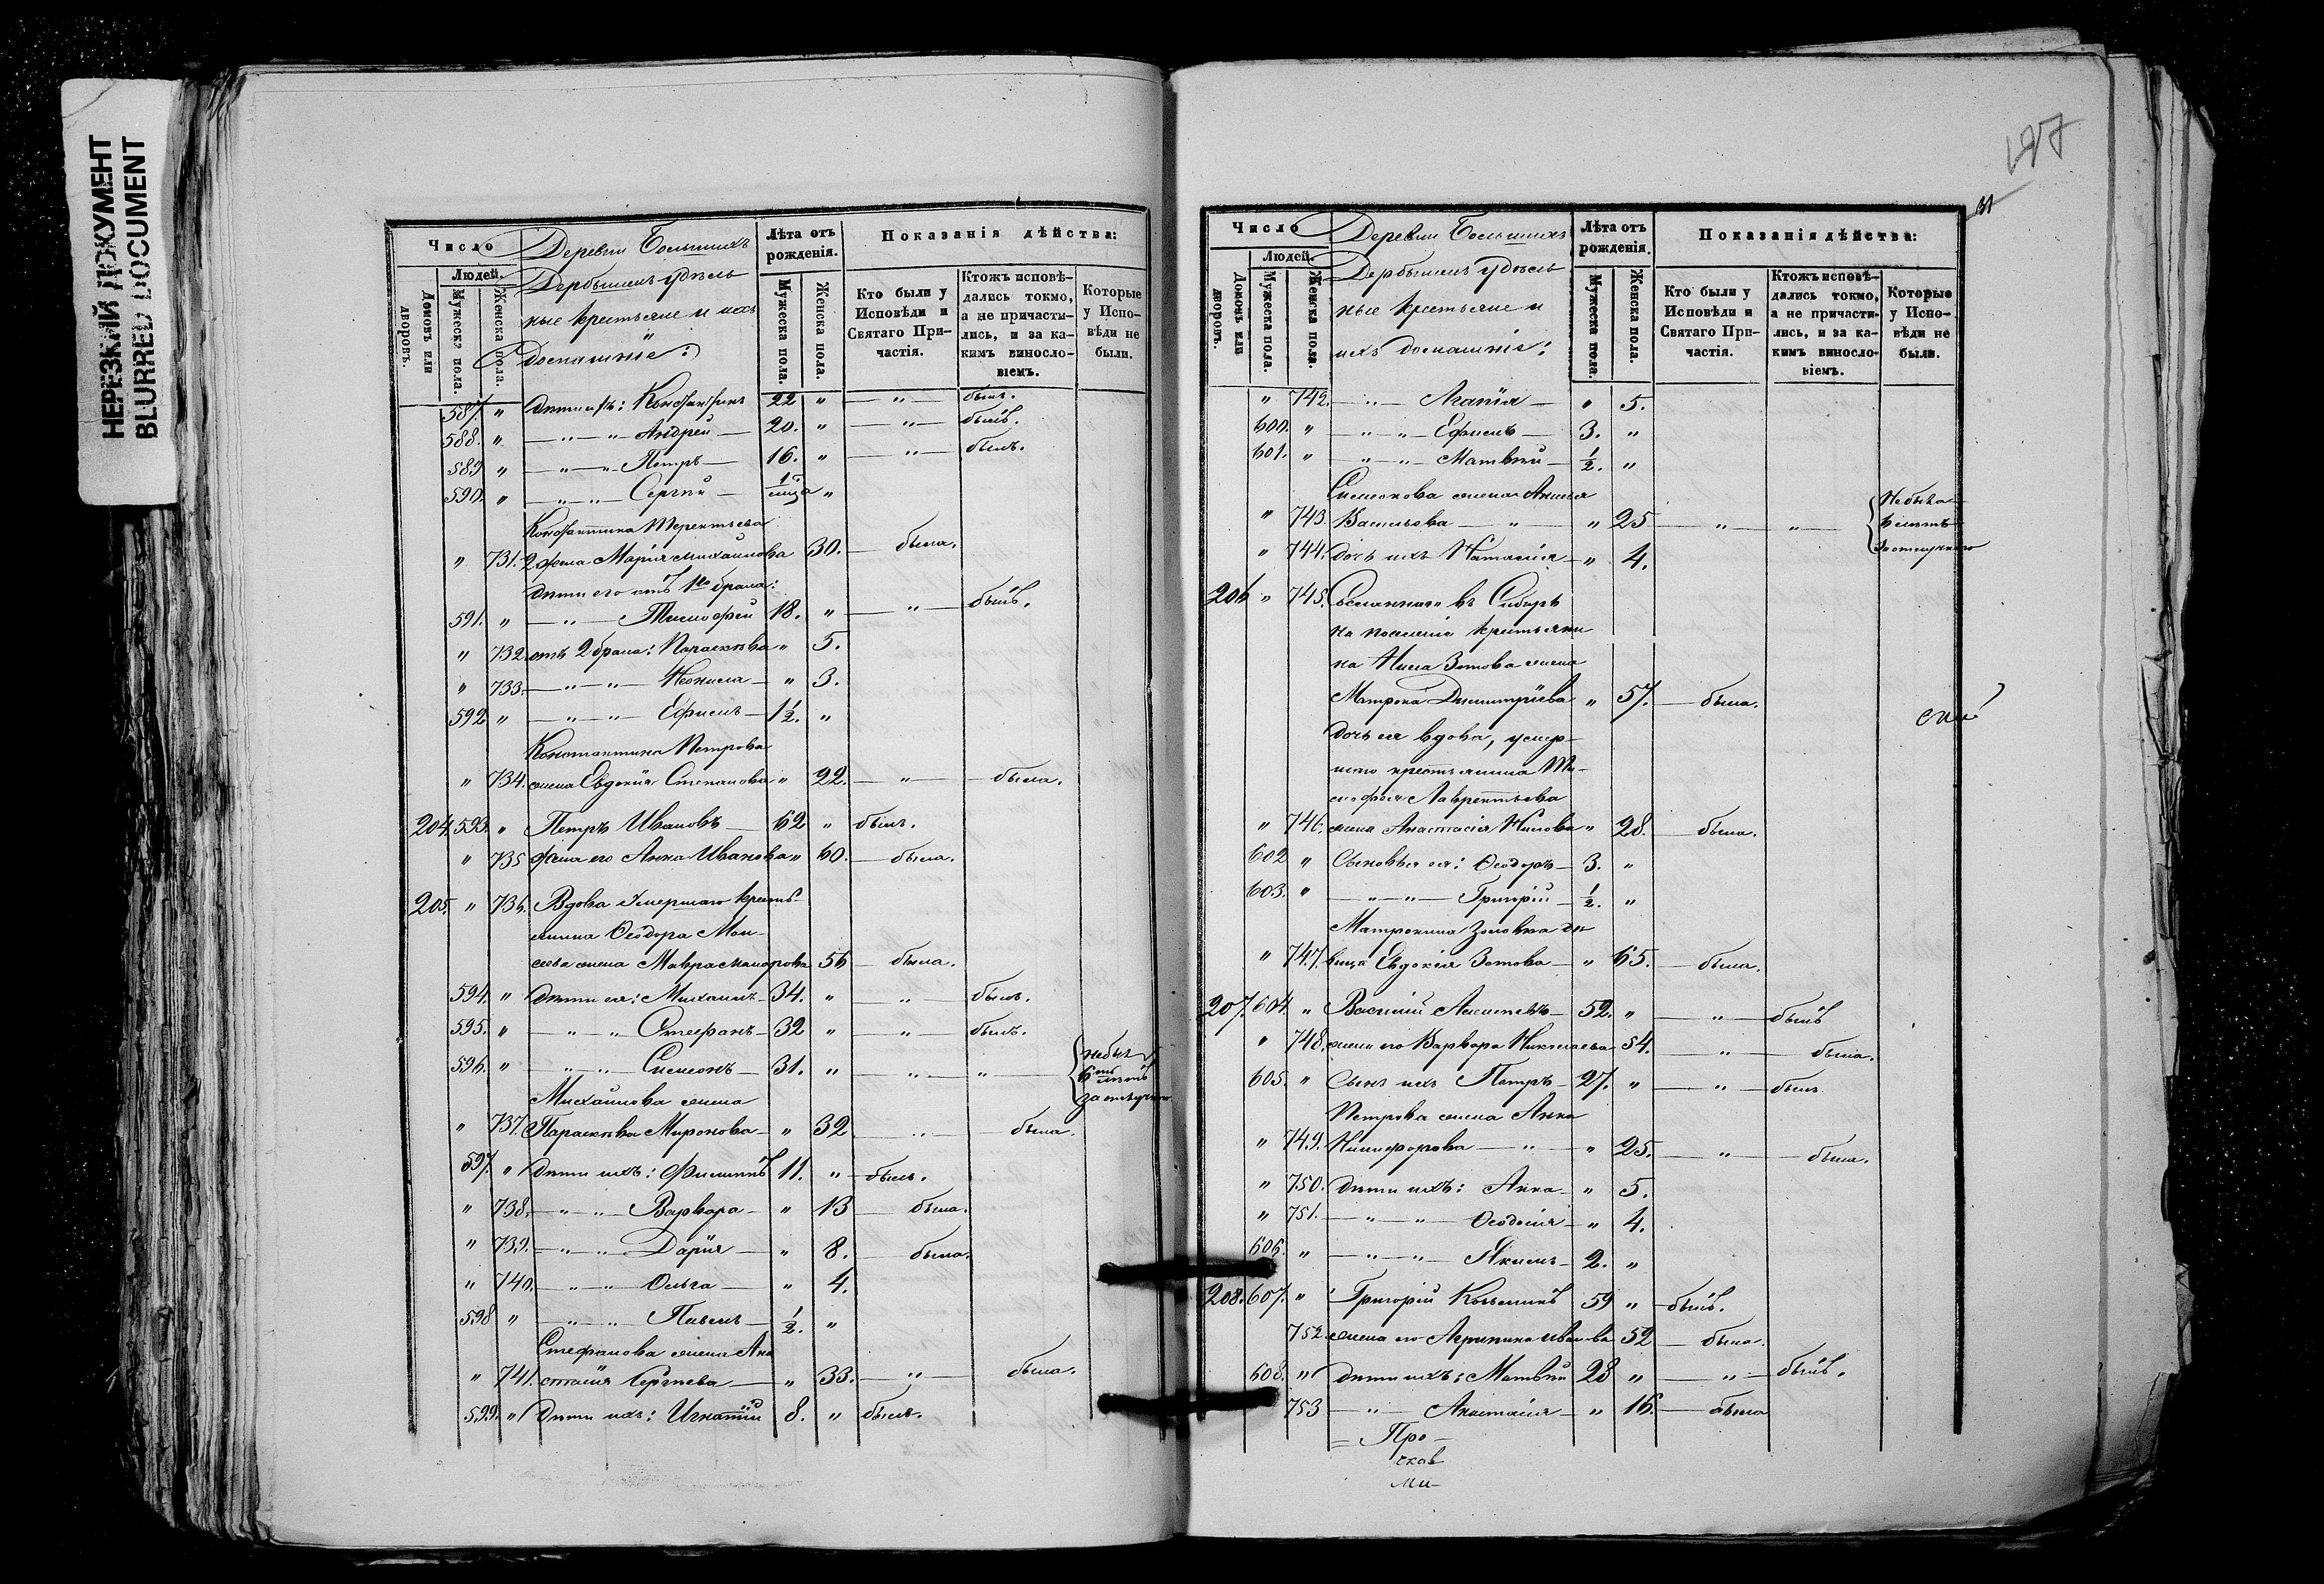 НЕРЕЗКИЙ ДОКУМЕНТ
BLURRED DOCUMENT
Число
Людей.
Домовъ или дворовъ.
Мужеска пола.
Женска пола.
Деревни Большихъ
Дербышекъ удѣль
ные крестьяне и ихъ
домашніе:
Лѣта отъ рожденія.
Мужеска пола.
Женска пола.
Показанія дѣйства:
Кто были у Исповѣди и Святаго Причастія.
Ктожъ исповѣ-
дались токмо,
а не причасти-
лись, и за ка-
кимъ винослo-
віемъ.
Которые
у Испо-
вѣди не
были.
587. " дѣти ихъ: Константинъ 22 " — " — былъ.
588. " — " — " Андрей — 20. " — " — былъ.
589 " — " — " Петръ — 16. " — " — былъ.
590. " — " — " Сергѣй — "
Константина Терентьева
" 731. 2 жена Марія Михайлова 30. — была.
дѣти его отъ 1го брака:
591. " — " — Тимофей 18. " — " — былъ.
" 732 отъ 2 брака: Параскева " 5.
" 733. — " — " — Неонила — " 3.
592 " — " — " — Ефимъ — 1½. "
Константина Петрова
" 734. жена Евдокія Степанова " 22. — " — была.
204. 593. " Петръ Ивановъ — 62 " былъ.
" 735 жена его Анна Иванова " 60. — была.
205. " 736. Вдова умершаго кресть-
янина Ѳеодора Мои-
сеева жена Мавра Макарова 56 — была.
594. " дѣти ея: Михаилъ — 34. " — " — былъ.
595. " — " — " Стефанъ — 32 " — " — былъ.
596. " — " — " Симеонъ — 31. " — " — " — небылъ
6ть лѣтъ
за отлучкою
Михайлова жена
" 737. Параскева Миронова — " 32 — " — была.
597. " дѣти ихъ: Филиппъ 11. " — былъ.
" 738. — " — " — Варвара — " 13 — была.
" 739. — " — " — Дарія — " 8. — была.
" 740. — " — " — Ольга — " 4.
598 " — " — " — Павелъ — ½. "
Стефанова жена Ана
" 741. стасія Сергѣева — " 33. — " — была.
599. " дѣти ихъ: Игнатій 8. " былъ.
197
Число
Людей.
Домовъ или дворовъ.
Мужеска пола.
Женска пола.
Деревни Большихъ
Дербышекъ удѣль
ные крестьяне и
ихъ домашніе:
Лѣта отъ рожденія.
Мужеска пола.
Женска пола.
Показанія дѣйства:
Кто были у Исповѣди и Святаго Причастія.
Ктожъ исповѣ-
дались токмо,
а не причасти-
лись, и за ка-
кимъ винослo-
віемъ.
Которые
у Испо-
вѣди не
были.
" 742. — " — Агапія — " 5.
600. " — " — " — Ефимъ — 3. "
601. " — " — " — Матвѣй — ½. "
Симеонова жена
" 743. Васильева — " — " 25 — " — " — Не была
6 лѣтъ
за отлучкою
" 744. дочь ихъ Наталія — " 4.
206 " 745. Сосланнаго въ Сибирь
на поселеніе крестьяни
на Нила Зотова жена
Матрона Димитріева " 57. — была.
дочь ея вдова, умер-
шаго крестьянина Ти-
мофея Лаврентьева
" 746. жена Анастасія Нилова " 28. — была.
602 " Сыновья ея: Ѳеодоръ — 3. "
603. " — " — " — Григорій — ½. "
Матронина золовка дѣ
" 747. вица Евдокія Зотова — " 65. — была.
207. 604. " Василій Алексѣевъ — 52. " — " — былъ
" 748. жена его Варвара Николаева 54. — " — была.
605. " Сынъ ихъ Петръ — 27. " — " — былъ.
Петрова жена Анна
" 749. Никифорова — " — " 25. — " — была.
" 750. дѣти ихъ: Анна — " 5.
" 751. — " — " — Ѳеодосія — " 4.
606. " — " — " — Якимъ — 2. "
208. 607. " Григорій Козьминъ 59 " — былъ.
752. жена его Агрипина Иванова 52 — была.
608. " дѣти ихъ: Матвѣй 28 " — " — былъ.
753 — " — Анастасія — " 16. — была